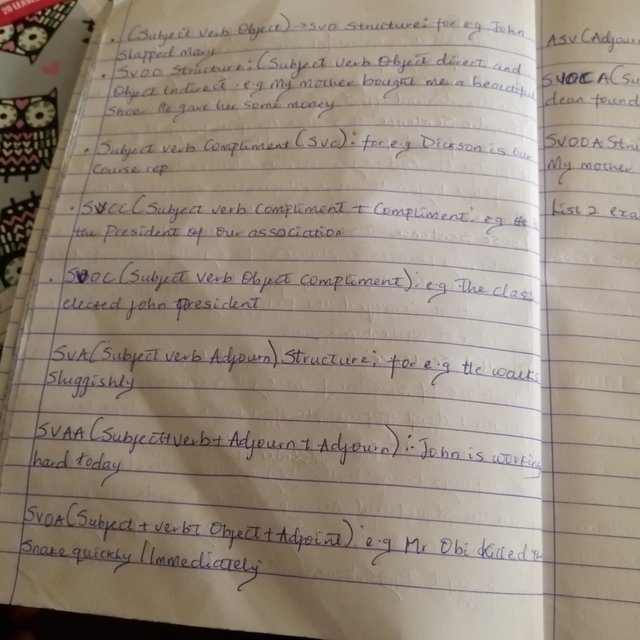 . (Subject verb Object) → SVO Structure: for e.g John
Slapped Mary
• SVOO Structure: (Subject verb Object direct and
Object indirect. e.g My mother bought me a beautiful
Shoe. He gave her some money
• Subject verb Compliment (SVC): for e.g Dickson is our
Course rep
• SVCC (Subject verb Compliment + Compliment. eg
the President of Our association
. SVOC (Subject verb Object compliment): e.g The class
elected john President
SVA (Subject verb Adjourn) Structure; for e.g He walks
Sluggishly
SVAA (Subject+verb+ Adjourn + Adjourn):- John is working
hard today
SVOA (Subject + verb + Object + Adpoint) e.g Mr Obi killed the
Snake quickly / Immediately
ASV (Adjourn
SVOCA (Su
clean found
SVOOA Stru
My mother
List 2 exa